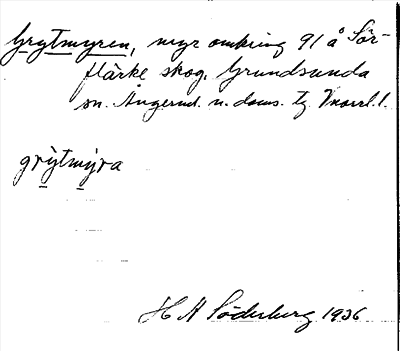 Grytmyren, myr omkring 91 å Sör-
flärke skog, Grundsunda
sn. Ångerml. n. doms. tg Vnorrl. l.
grytmyra
H A Söderberg 1936